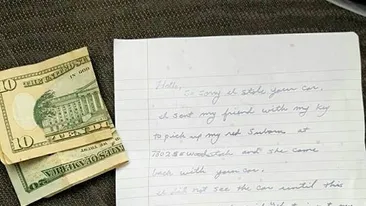 10
IN GOD
10
20
Hello,
So sorry I stole your car.
I sent my friend with my key
to pick up my red Subaru at
7802 SE Woodstock and she came
back with your car.
I did not see the car until this